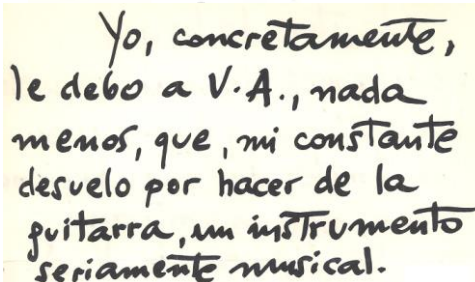 Yo, concretamente,
le debo a V.A., nada
menos, que, mi constante
desvelo por hacer de la
guitarra, un instrumento
seriamente musical.